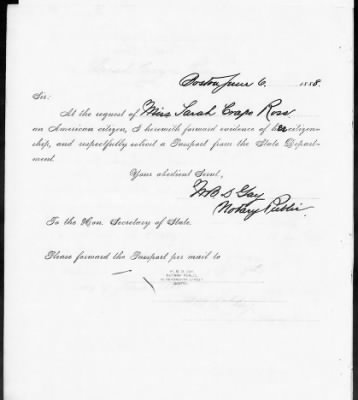 Boston June 6. 1888.
Sir:
At the request of Miss Sarah Ross
an American citizen, I herewith forward evidence of her citizen-
ship, and respectfully solicit a Passport from the State Depart-
ment.
Your obedient Servt,
W. B. S. Gay
Notary Public.
To the Hon. Secretary of State.
Please forward the Passport per mail to
NOTARY PUBLIC,
BOSTON.